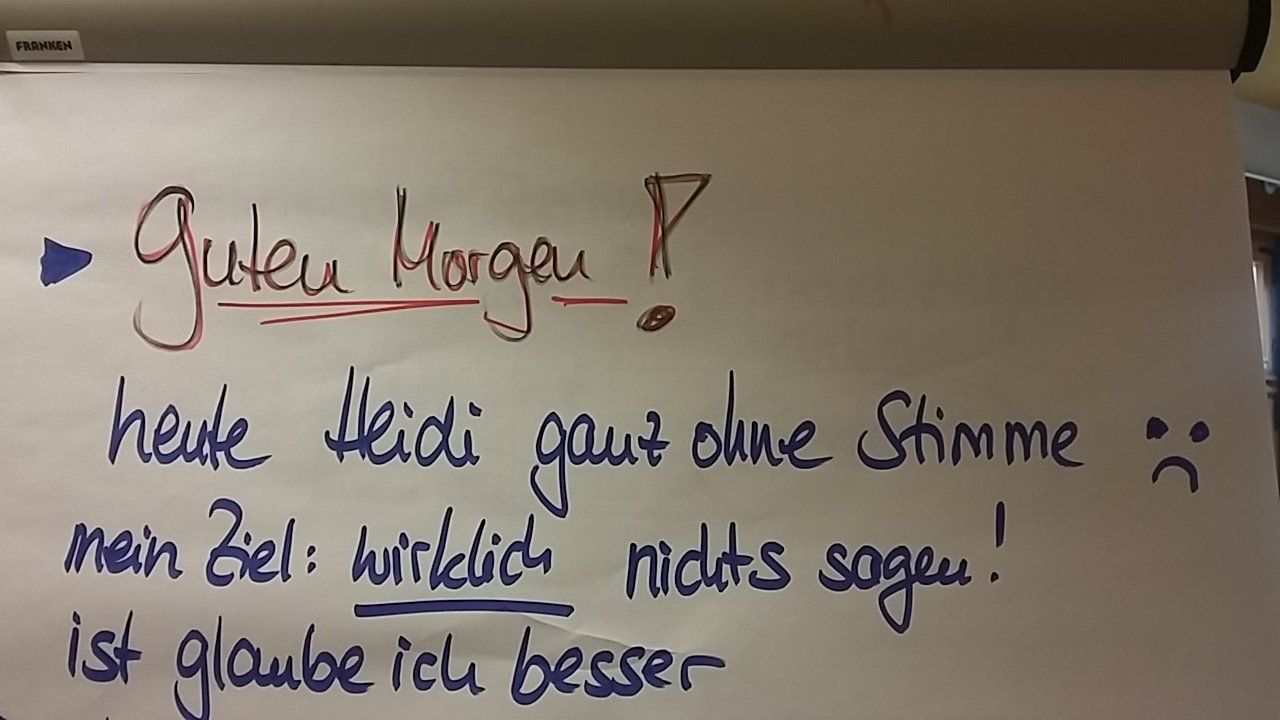 FRANKEN
Guten Morgen!
heute Heidi ganz ohne Stimme
mein Ziel: wirklich nichts sagen!
ist glaube ich besser